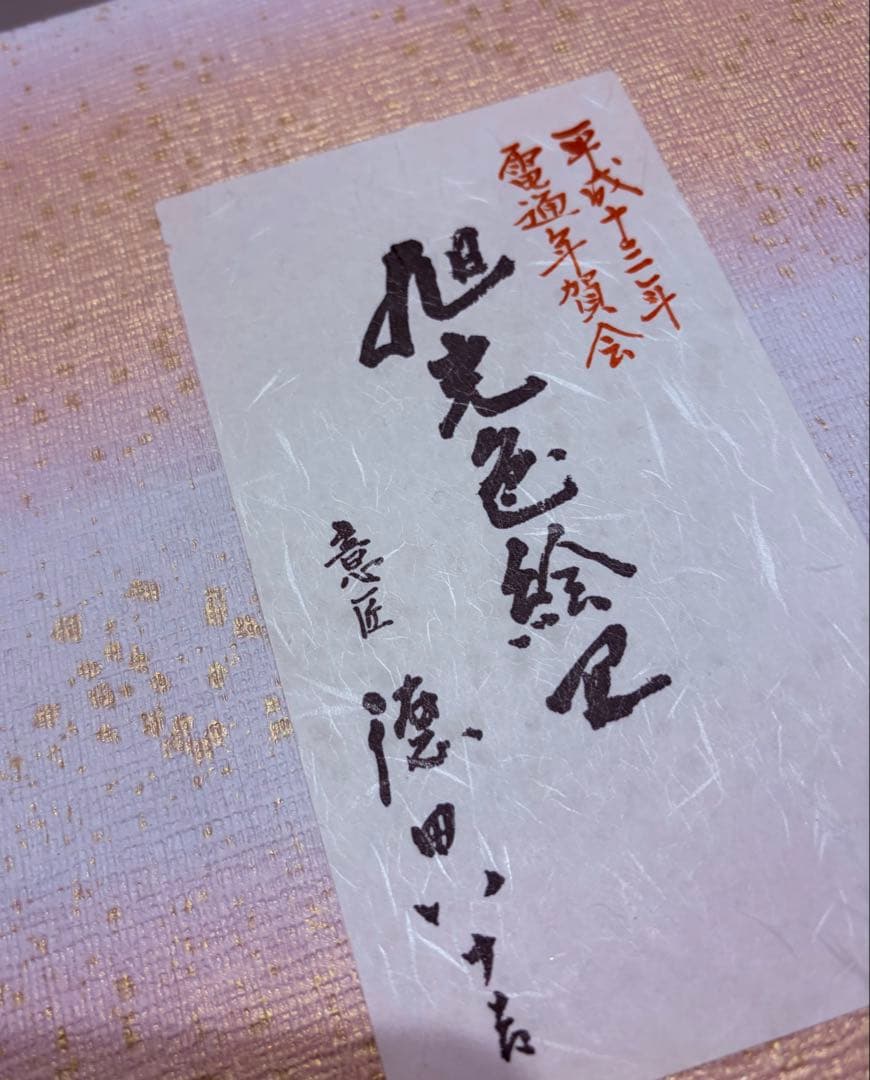 平成十三年
電通年賀会
旭光色絵皿
意匠 德田八十吉